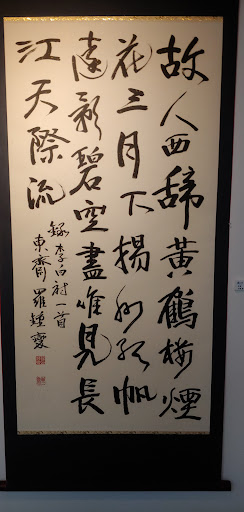 故人西辭黃鶴樓煙
花三月下揚州孤帆
遠影碧空盡唯見長
江天際流
錄李白詩一首
東齋羅鍾